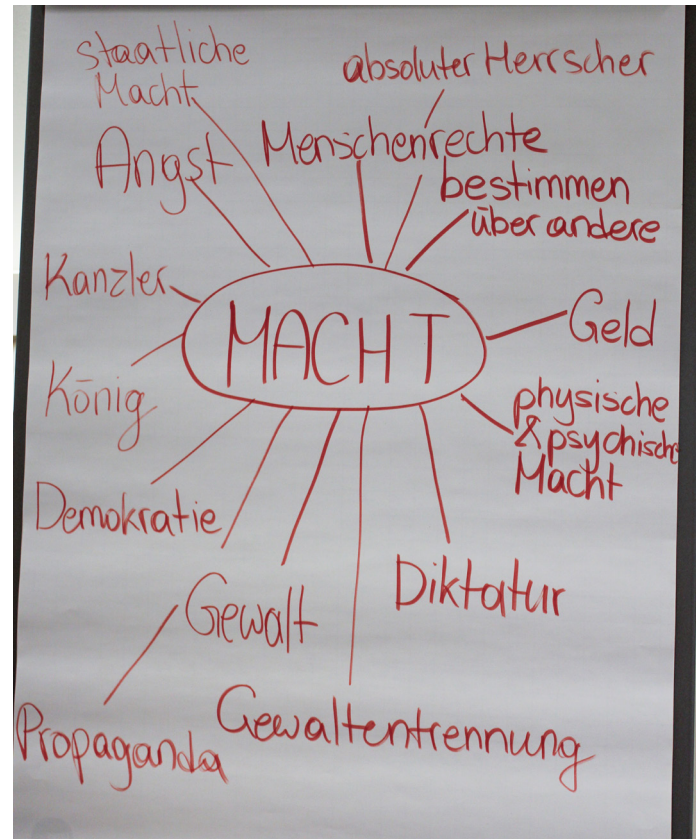 staatliche
Macht
absoluter Herrscher
Angst
Menschenrechte
bestimmen
über andere
Kanzler
MACHT
Geld
König
physische
& psychische
Macht
Demokratie
Diktatur
Gewalt
Propaganda
Gewaltentrennung